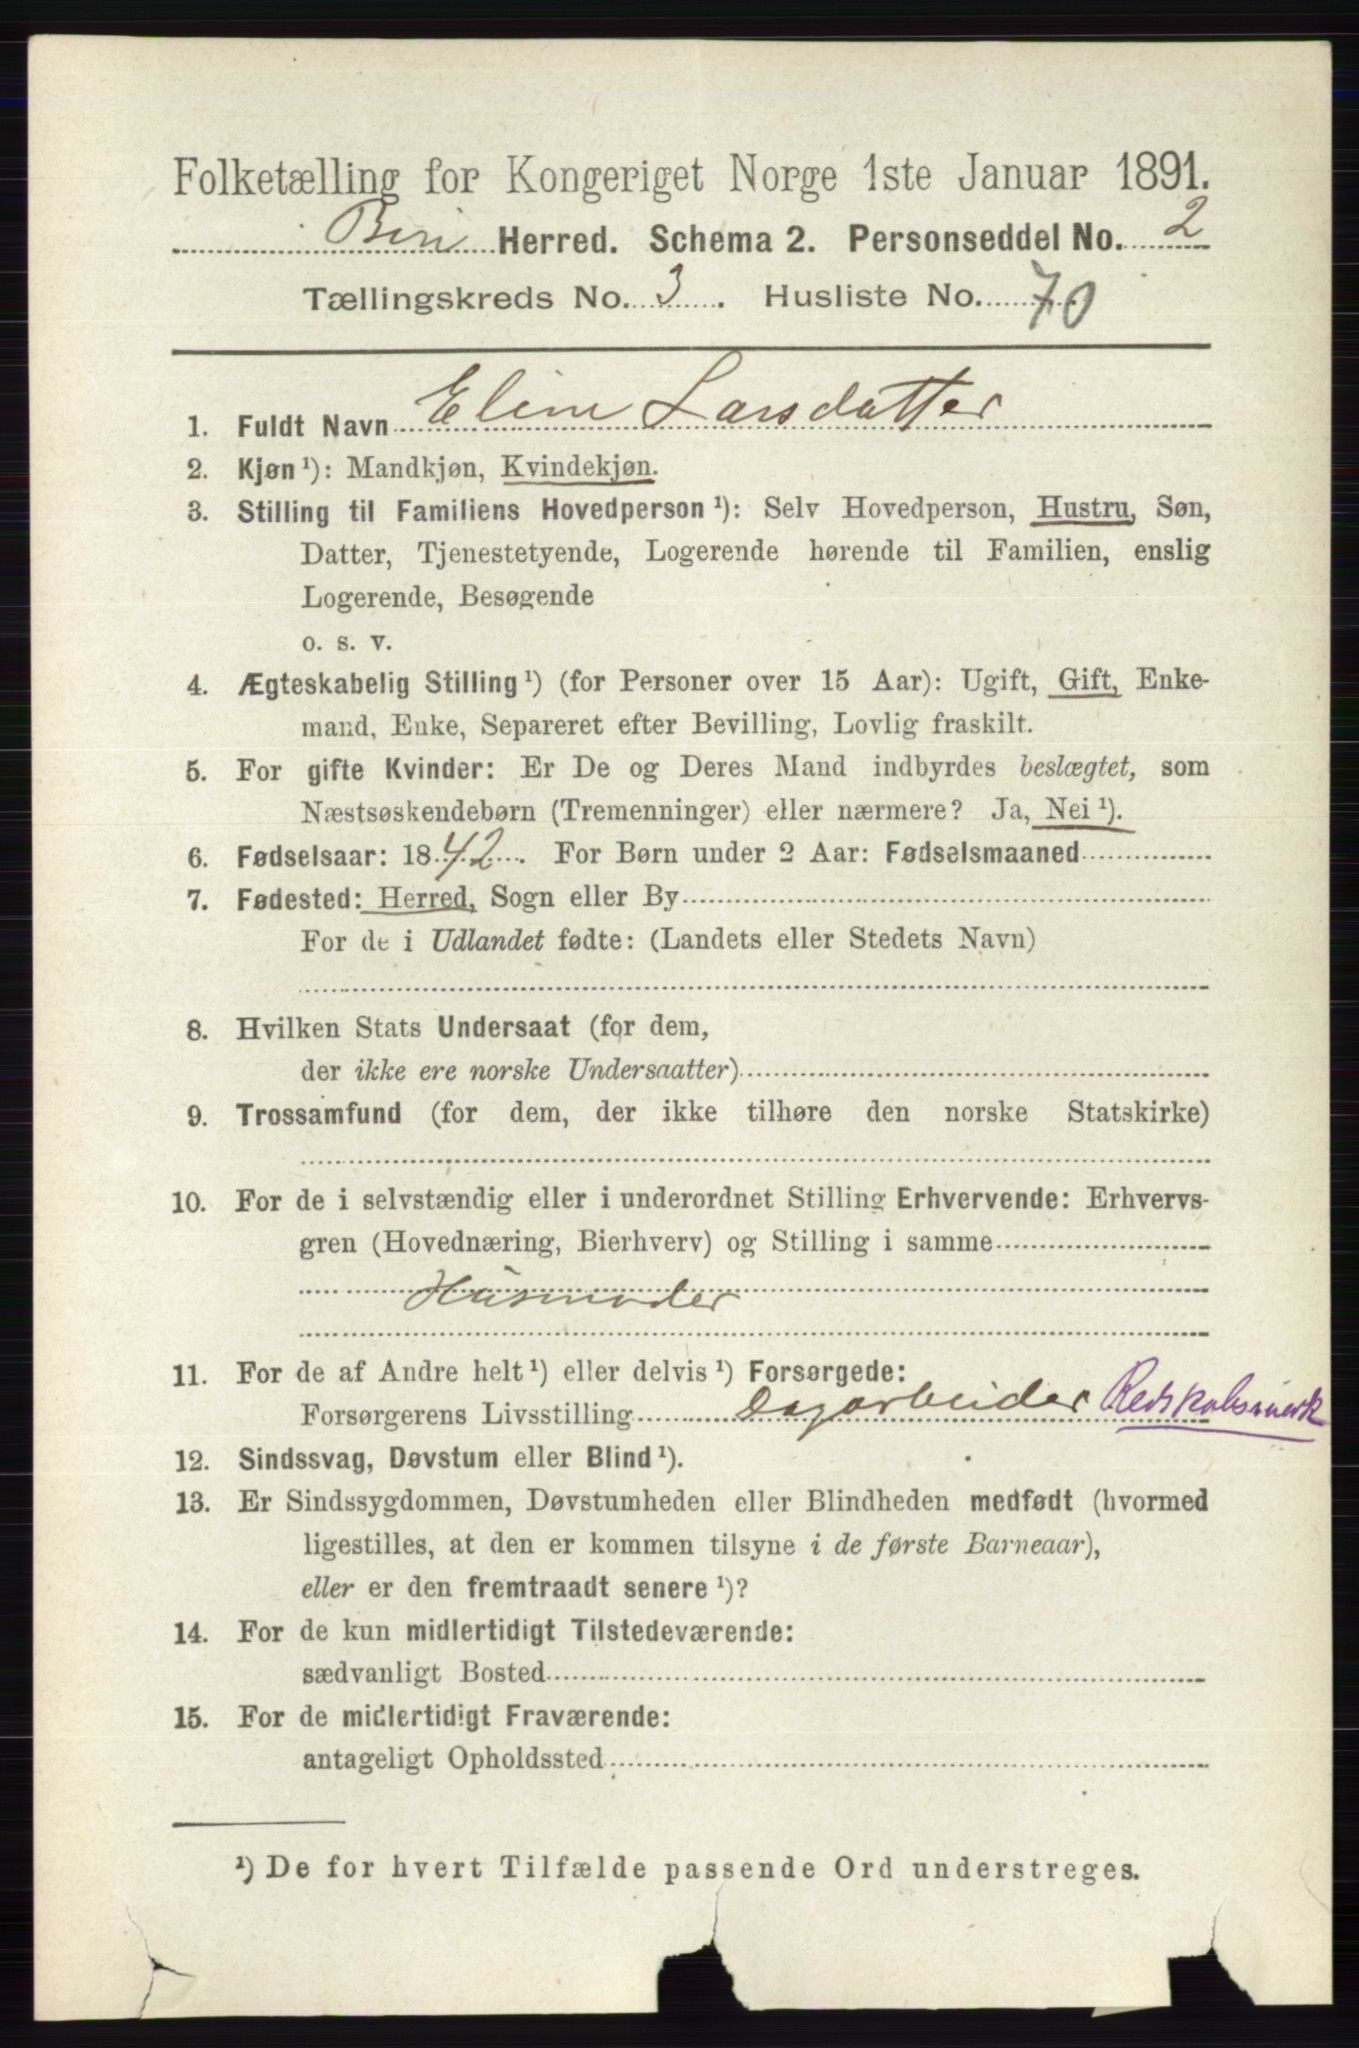 Folketælling for Kongeriget Norge 1ste Januar 1891.
Biri Herred. Schema 2. Personseddel No. 2
Tællingskreds No. 3. Husliste No. 70
1. Fuldt Navn Eline Larsdatter
2. Kjøn ¹): Mandkjøn, Kvindekjøn.
3. Stilling til Familiens Hovedperson ¹): Selv Hovedperson, Hustru, Søn,
Datter, Tjenestetyende, Logerende hørende til Familien, enslig
Logerende, Besøgende
o. s. v.
4. Ægteskabelig Stilling ¹) (for Personer over 15 Aar): Ugift, Gift, Enke-
mand, Enke, Separeret efter Bevilling, Lovlig fraskilt.
5. For gifte Kvinder: Er De og Deres Mand indbyrdes beslægtet, som
Næstsøskendebørn (Tremenninger) eller nærmere? Ja, Nei ¹).
6. Fødselsaar: 1842. For Børn under 2 Aar: Fødselsmaaned
7. Fødested: Herred, Sogn eller By
For de i Udlandet fødte: (Landets eller Stedets Navn)
8. Hvilken Stats Undersaat (for dem,
der ikke ere norske Undersaatter)
9. Trossamfund (for dem, der ikke tilhøre den norske Statskirke)
10. For de i selvstændig eller i underordnet Stilling Erhvervende: Erhvervs-
gren (Hovednæring, Bierhverv) og Stilling i samme
Husmoder
11. For de af Andre helt ¹) eller delvis ¹) Forsørgede:
Forsørgerens Livsstilling Dagarbeider
12. Sindssvag, Døvstum eller Blind ¹).
13. Er Sindssygdommen, Døvstumheden eller Blindheden medfødt (hvormed
ligestilles, at den er kommen tilsyne i de første Barneaar),
eller er den fremtraadt senere ¹)?
14. For de kun midlertidigt Tilstedeværende:
sædvanligt Bosted
15. For de midlertidigt Fraværende:
antageligt Opholdssted
¹) De for hvert Tilfælde passende Ord understreges.